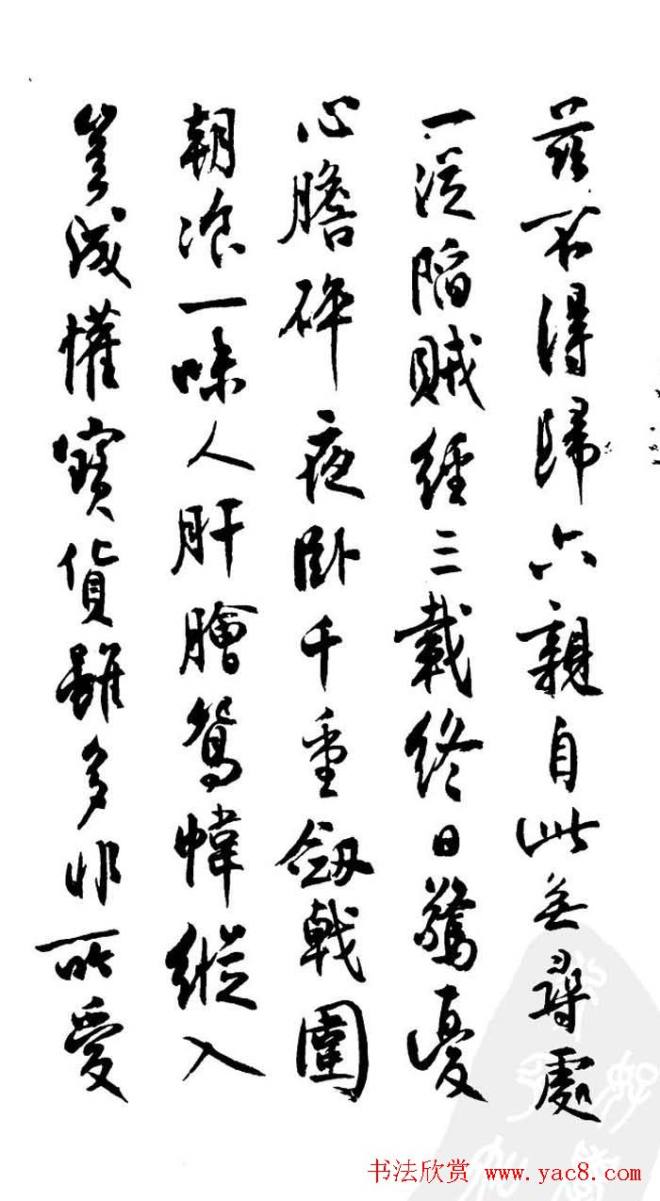 兹不得歸六親自此無尋處
一從陷賊經三載終日驚憂
心膽碎夜卧千重劒戟圍
朝湌一味人肝膾鴛幃縱入
豈成懽寶貨雖多非所愛
书法欣赏 www.yac8.com